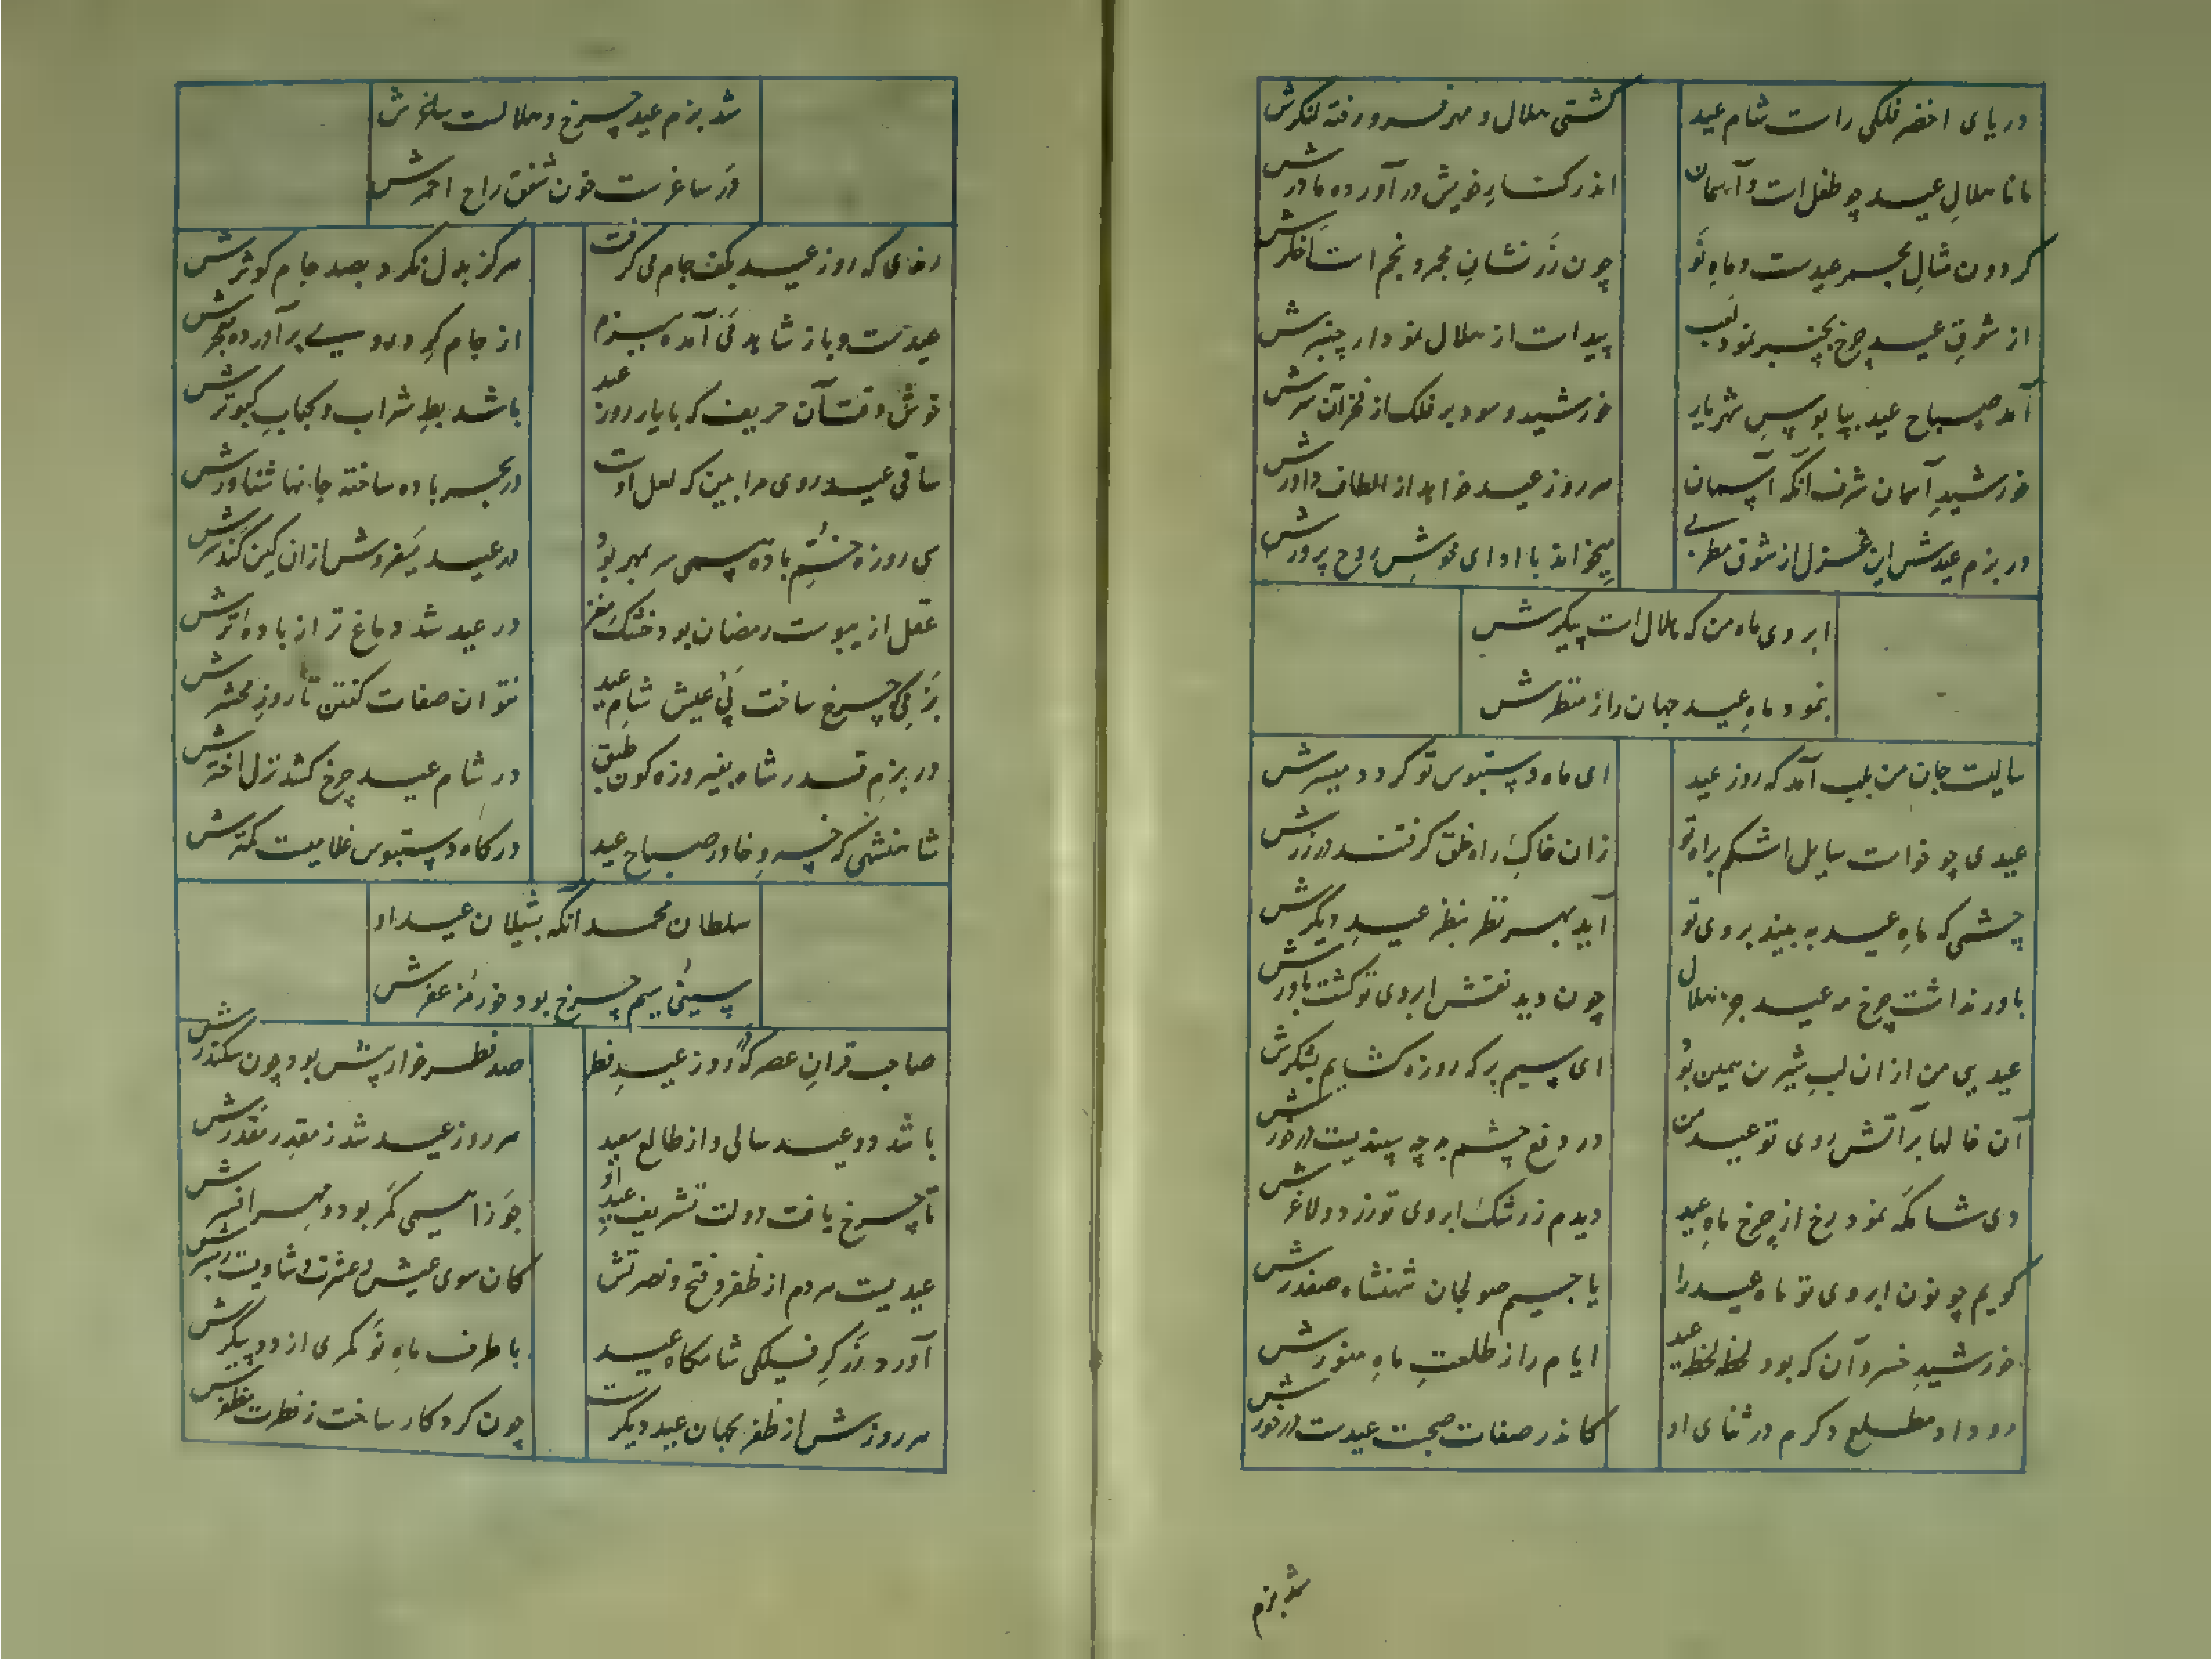 دریای اخضر فلکی راست شام عید
کشتی هلال و مهر فرو رفته لنکرش
مانا هلالِ عید چو طفل است و آسمان
اندر کنارِ خویش در آورده مادرش
کردون مثالِ مجمر عیدست و ماهِ نَو
چون زَر نشانِ مجمر و نجم است اَخکرش
از شوقِ عید چرخ بچنبر نمود لعب
پیداست از هلال نمودار چنبرش
آمد صباح عید بپا بوسِ شهریار
خورشید و سود بر فلک از فخر آن سرش
خورشیدِ آسمان شرف آنکه آسمان
هر روز عید خواهد از الطاف داورش
در بزم عیدش این غزل از شوق مطربی
میخواند با ادای خوشِ روح پرورش
ابروی ماه من که هلال است پیکرش
بنمود ماهِ عید جهان را ز منظرش
سالیست جان من بلب آمد که روز عید
ای ماه دستبوس تو کردد میسرش
عیدی چو خواست سایل اشکم براه تو
زان خاکِ راه خلق کرفتند در زرش
چشمی که ماهِ عید به بیند بروی تو
آید بهر نظر بنظر عیدِ دیکرش
باور نداشت چرخ مه عید جز هلال
چون دید نقش ابروی تو کشت باورش
عیدیی من از ان لبِ شیرین همین بُوَد
ای سیم بر که روزه کشایم بشکرش
آن خالها بر آتش روی تو عید من
در دفع چشم بد چه سپندیست در خورش
دی شامکه نمود رخ از چرخ ماهِ عید
دیدم ز رشک ابروی تو زرد و لاغرش
کویم چو نون ابروی تو ماه عید را
یا جیم صولجان شهنشاه صفدرش
خورشیدِ خسروان که بود لحظه لحظه عید
ایام را ز طلعتِ ماهِ منورش
رو داد مطلع دکرم در ثنای او
کاندر صفات صبحت عیدست در خورش
شد بزم
شد بزم عید چرخ و هلالست ساغرش
در ساغرست خون شفق راح احمرش
رندی که روز عید بکف جام می کرفت
هرکز بدل نکرد بصد جام کوثرش
عیدست و باز شاهد نَی آمده ببزم
از جام کرد دود سیه بر آورده مجمرش
خوش وقت آن حریف که با یار روز عید
باشد بطِ شراب و کبابِ کبوترش
ساقی عید روی مرا بین که لعل اوست
در بحر باده ساخته جانها شناورش
سی روزه خُمّ باده سیمی سر بمهر بُوَد
در عید میفروش از ان کین کند سرش
عقل از یبوست رمضان بود خشک مغز
در عید شد دماغ تر از باده ترش
بزمی که چرخ ساخت پَیِ عیش شام عید
نتوان صفات کفتن تا روزِ محشرش
در بزمِ قدر شاه بفیروزه کون طبق
در شام عید چرخ کشد نزل اخترش
شاهنشهی که خسروِ خاور صباح عید
درکاه دستبوس غلامیست کمترش
سلطان محمد آنکه بشیلان عید او
سینئی سیم چرخ بود خور مزعفرش
صاحب قرانِ عصر که در روز عیدِ فطر
صد فطره خوار پیش بود چون سکندرش
باشد دو عید سالی و از طالع سعید
هر روز عید شد ز مقدر مقدرش
تا چرخ یافت دولت تشریف عیدِ او
جوزا سیمی کمر بود و مهر افسرش
عیدیست هر دم از ظفر و فتح و نصرتش
کان سوی عیش و عشرت و شادیست رهبرش
آورد زرکرِ فلکی شامکاه عید
با طرف ماهِ نَو کمری از دو پیکرش
هر روزش از ظفر بجهان عید دیکرست
چون کردکار ساخت ز فطرت مظفرش